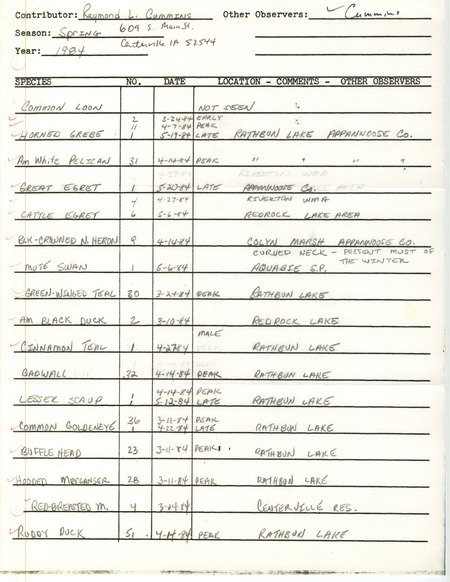 Contributor: Raymond L. Cummins Other Observers: ✓ Cummins
Season: Spring 609 S. Main St.
Centerville IA 52544
Year: 1984
SPECIES NO. DATE LOCATION - COMMENTS - OTHER OBSERVERS
COMMON LOON NOT SEEN
2 3-24-84 EARLY
11 4-7-84 PEAK
HORNED GREBE 1 5-19-84 LATE RATHBUN LAKE APPANNOOSE CO.
AM WHITE PELICAN 31 4-14-84 PEAK " " " "
GREAT EGRET 1 5-20-84 LATE APPANNOOSE CO.
4 4-27-84 RIVERTON WMA
CATTLE EGRET 6 5-6-84 REDROCK LAKE AREA
BLK-CROWNED N. HERON 9 4-14-84 COLYN MARSH APPANNOOSE CO.
CURVED NECK - PRESENT MOST OF
THE WINTER
MUTE SWAN 1 5-6-84 AQUAGIE S.P.
GREEN-WINGED TEAL 30 3-24-84 PEAK RATHBUN LAKE
AM BLACK DUCK 2 3-10-84 REDROCK LAKE
MALE
CINNAMON TEAL 1 4-27-84 RATHBUN LAKE
GADWALL 32 4-14-84 PEAK RATHBUN LAKE
1 4-14-84 PEAK
LESSER SCAUP 1 5-12-84 LATE RATHBUN LAKE
36 3-11-84 PEAK
COMMON GOLDENEYE 1 4-22-84 LATE RATHBUN LAKE
BUFFLEHEAD 23 3-11-84 PEAK RATHBUN LAKE
HOODED MERGANSER 28 3-11-84 PEAK RATHBUN LAKE
RED-BREASTED M. 4 CENTERVILLE RES.
RUDDY DUCK 51 4-14-84 PEAK RATHBUN LAKE